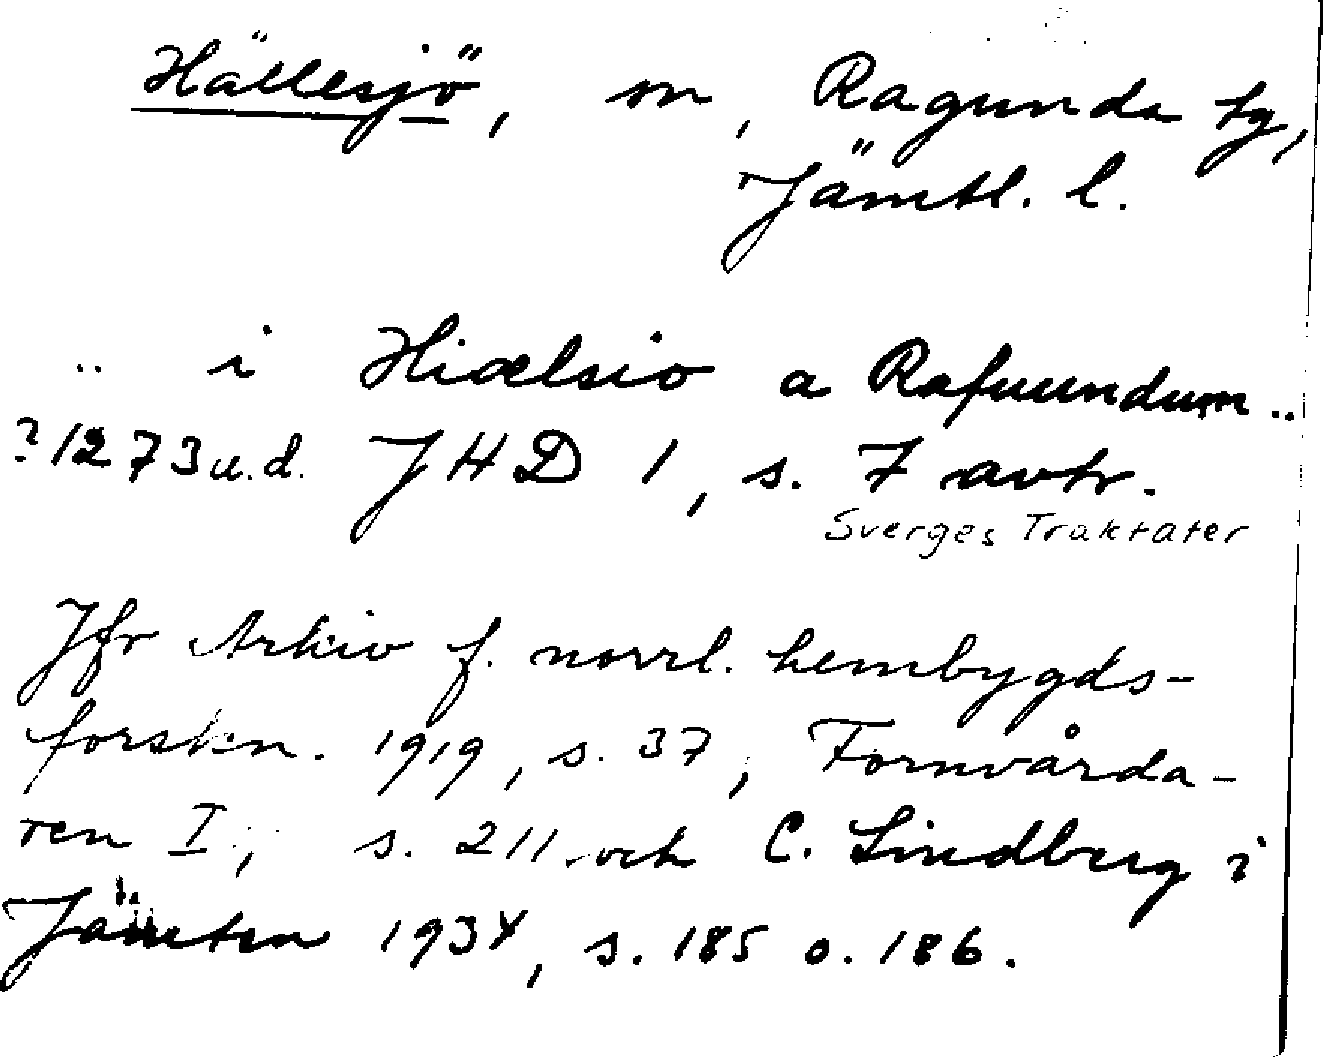 Hällesjö, sn, Ragunda tg,
Jämtl. l.
.. i Hiælsio a Rafuundum ..
? 1273 u.d. JHD 1, s. 7 avtr.
Sverges Traktater
Jfr Arkiv f. norrl. hembygds-
forskn. 1919, s. 37, Fornvårda-
ren I, s. 211 och C. Lindberg i
Jämten 1934, s. 185 o. 186.